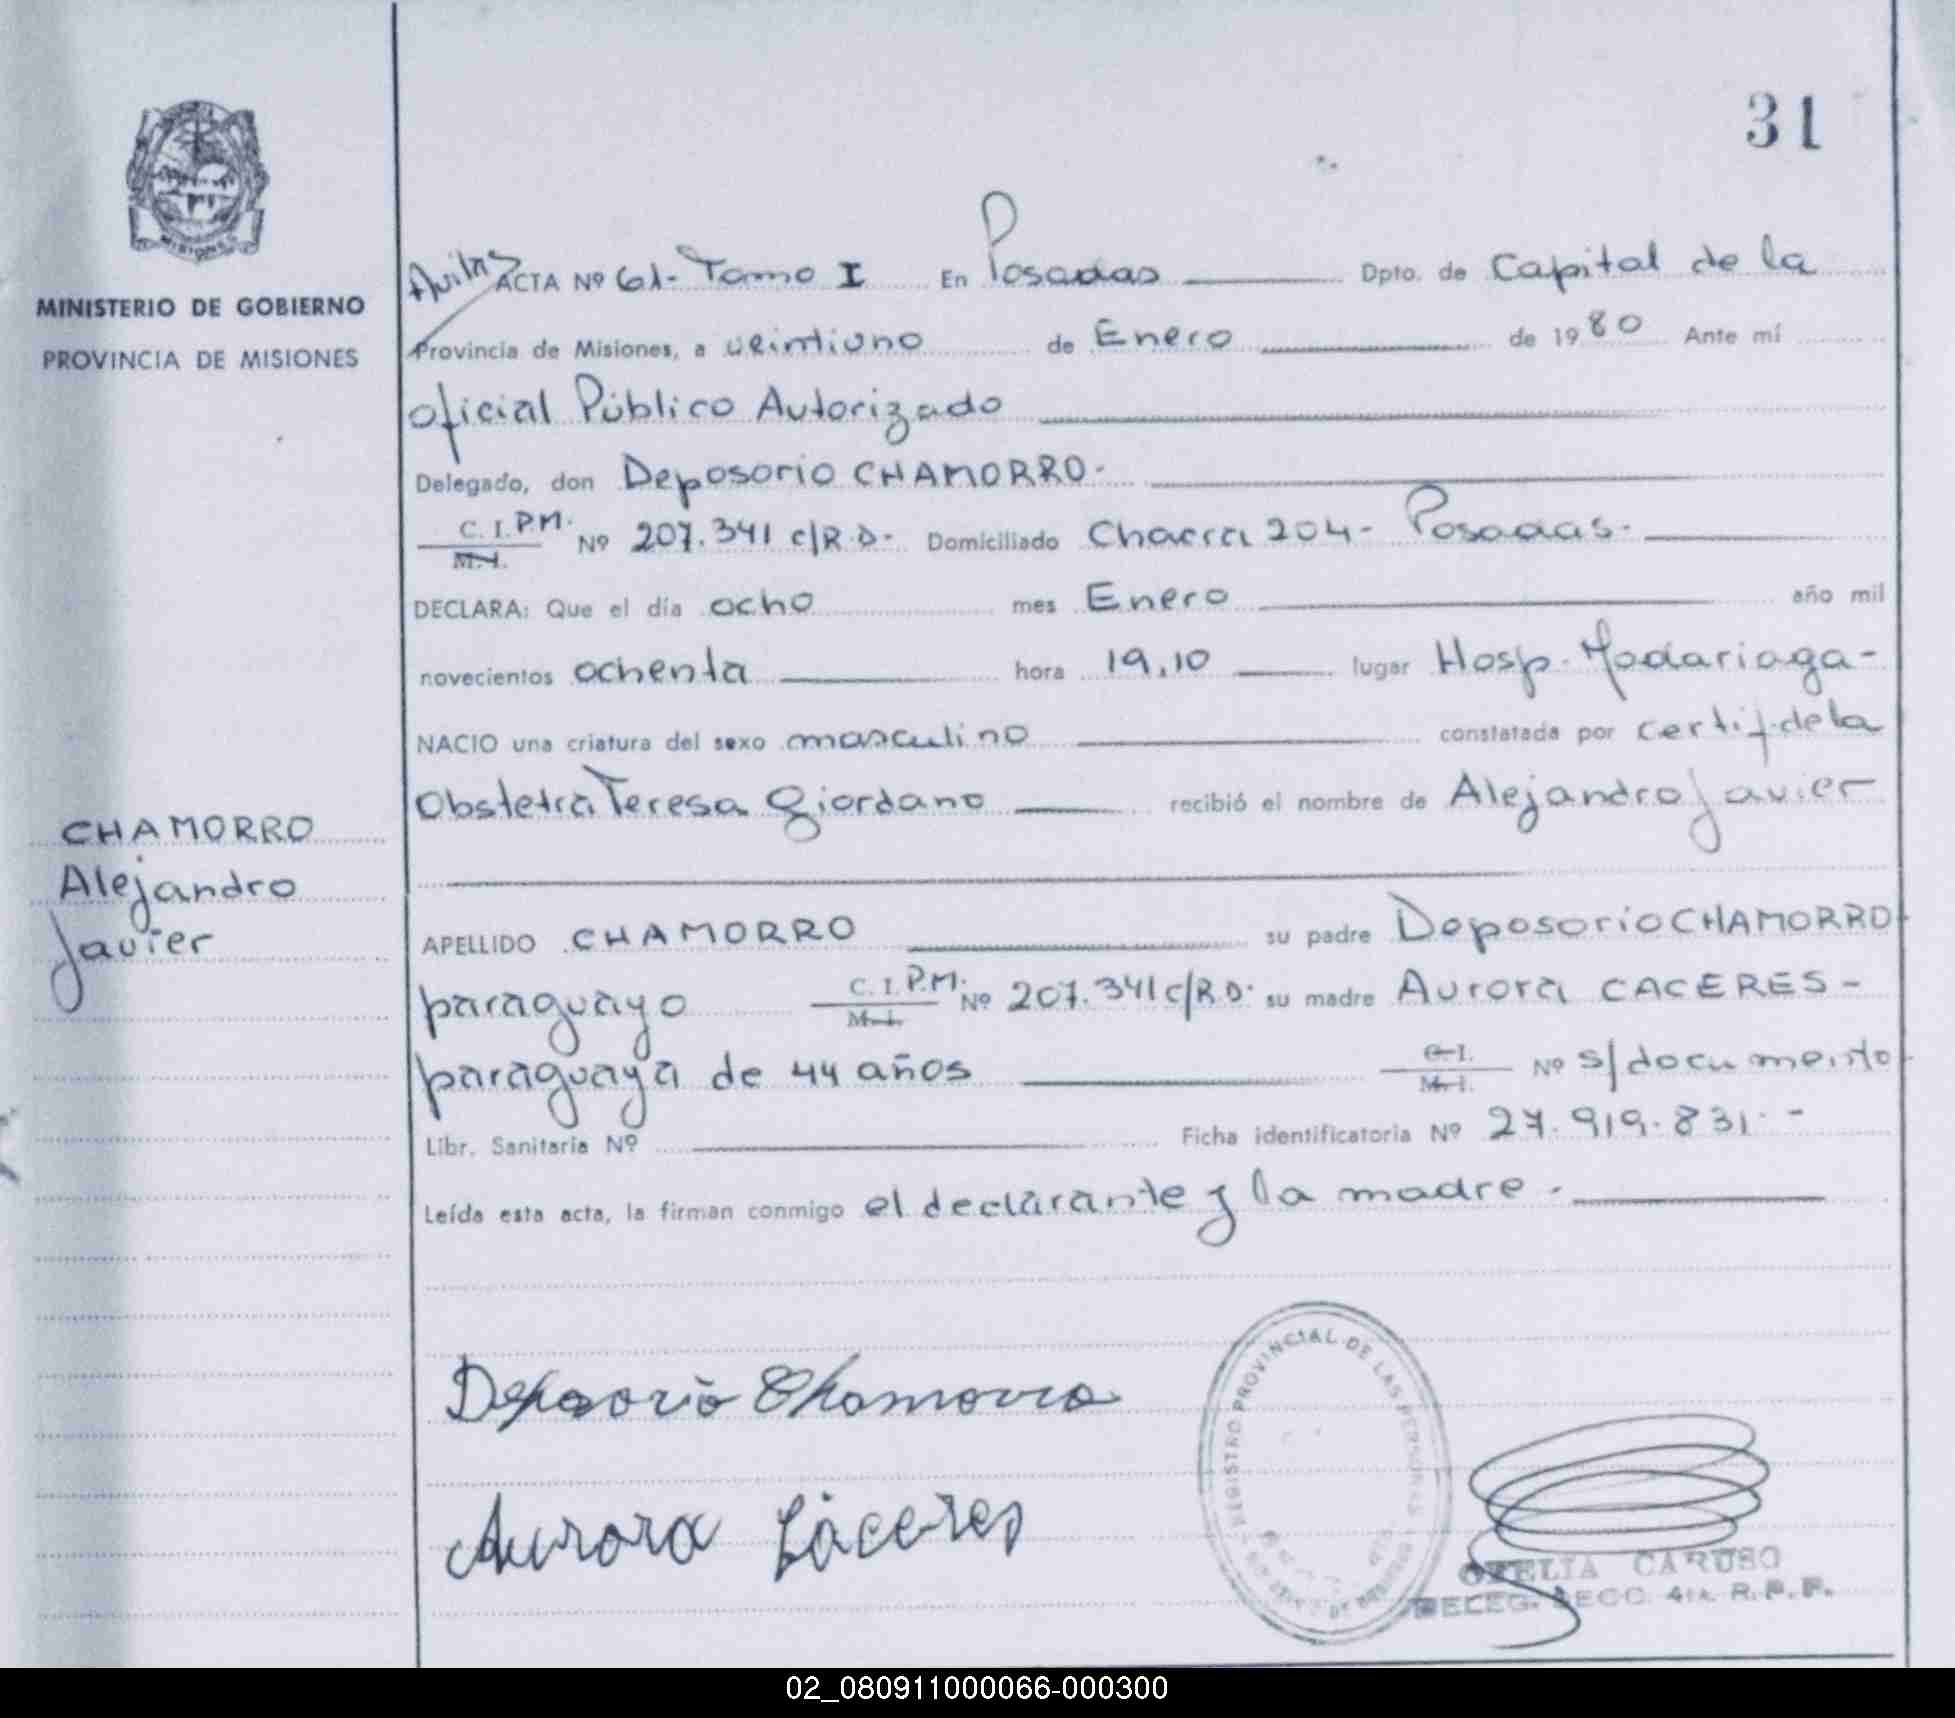 31
MISIONES
MINISTERIO DE GOBIERNO
PROVINCIA DE MISIONES
ACTA Nº 61- Tomo I En Posadas Dpto. de Capital de la
Provincia de Misiones, a veintiuno de Enero de 1980 Ante mí
oficial Público Autorizado
Delegado, don Deposorio CHAMORRO.
C. I. P.M.
M. I. Nº 207.341 c/R.D- Domiciliado Chacra 204- Posadas.
DECLARA: Que el día ocho mes Enero año mil
novecientos ochenta hora 19,10 lugar Hosp. Madariaga-
NACIO una criatura del sexo masculino constatada por certif. de la
Obstetra Teresa Giordano recibió el nombre de Alejandro Javier
CHAMORRO
Alejandro
Javier
APELLIDO CHAMORRO su padre Deposorio CHAMORRO
paraguayo C. I. P.M. Nº 207.341 c/R.D. su madre Aurora CACERES-
M. I.
paraguaya de 44 años C. I. Nº s/documento
M. I.
Libr. Sanitaria Nº Ficha identificatoria Nº 27.919.831.-
Leída esta acta, la firman conmigo el declarante y la madre.
Deposorio Chamorro
Aurora Cáceres
REGISTRO PROVINCIAL DE LAS PERSONAS
OFELIA CARUSO
DELEG. SECC. 4ta. R.P.P.
02_080911000066-000300